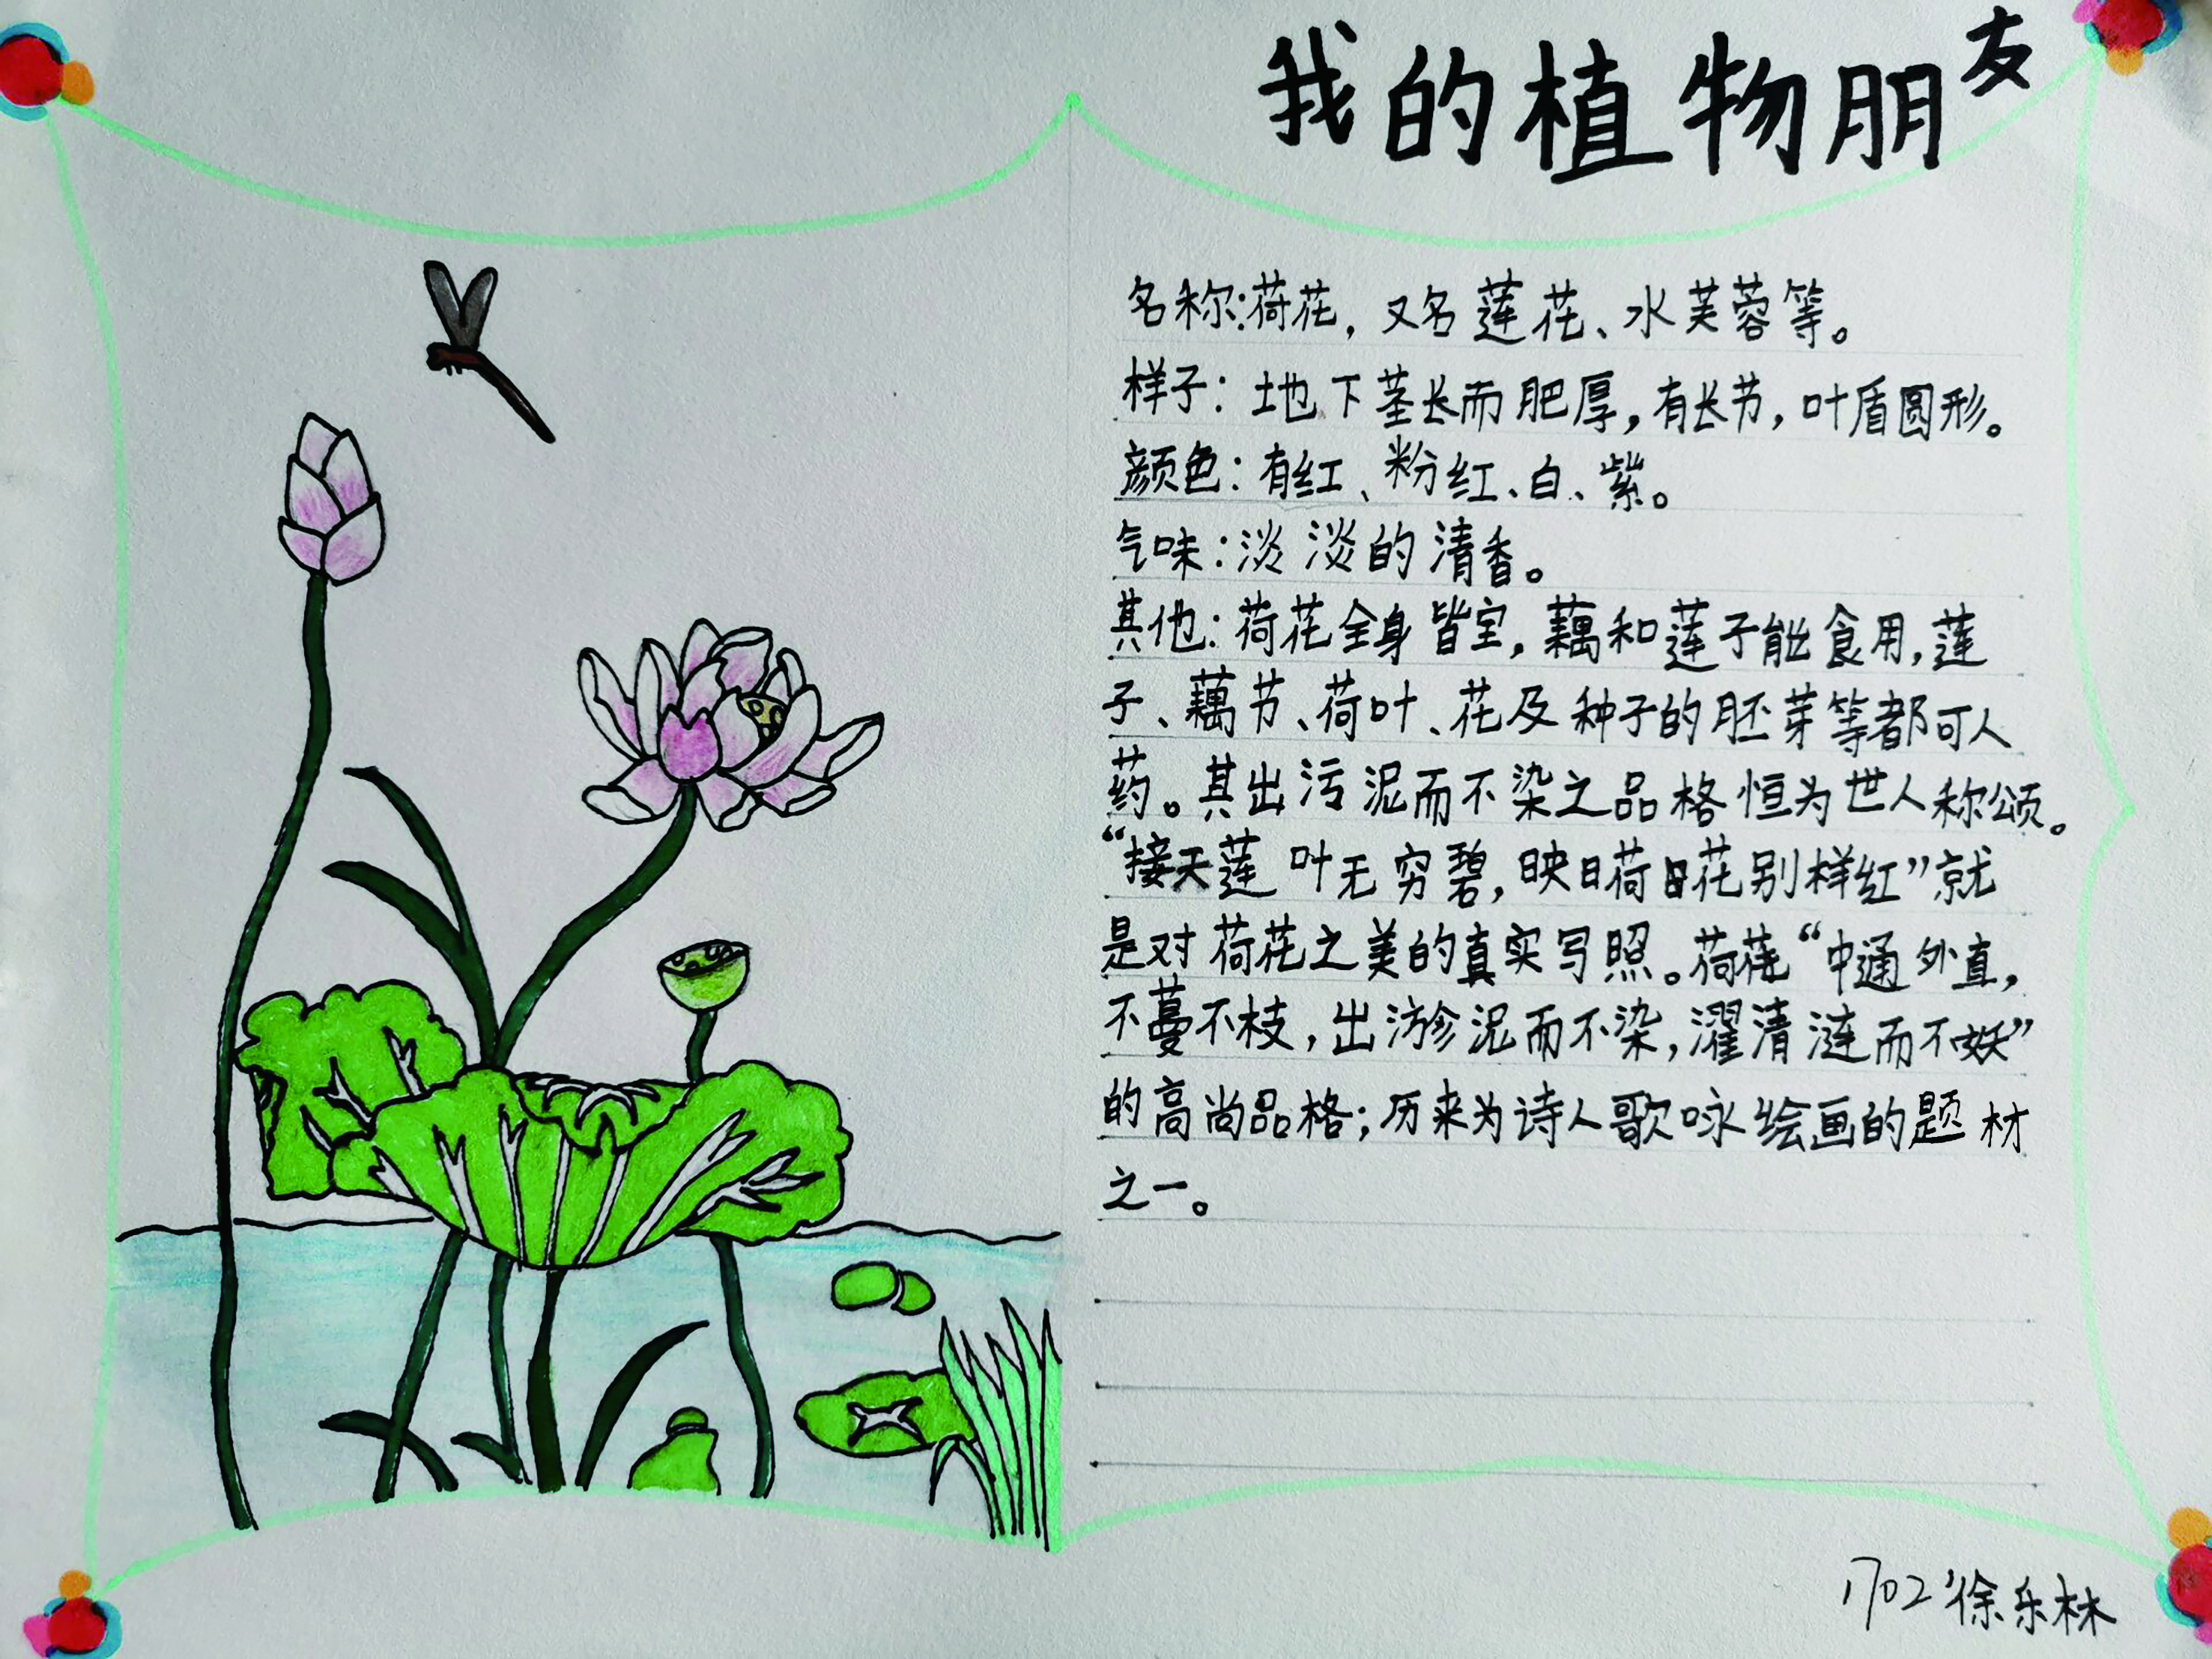 我的植物朋友
名称:荷花，又名莲花、水芙蓉等。
样子：地下茎长而肥厚，有长节，叶盾圆形。
颜色：有红、粉红、白、紫。
气味：淡淡的清香。
其他：荷花全身皆宝，藕和莲子能食用，莲
子、藕节、荷叶、花及种子的胚芽等都可入
药。其出污泥而不染之品格恒为世人称颂。
“接天莲叶无穷碧，映日荷花别样红”就
是对荷花之美的真实写照。荷花“中通外直，
不蔓不枝，出淤泥而不染，濯清涟而不妖”
的高尚品格；历来为诗人歌咏绘画的题材
之一。
1702 徐乐林